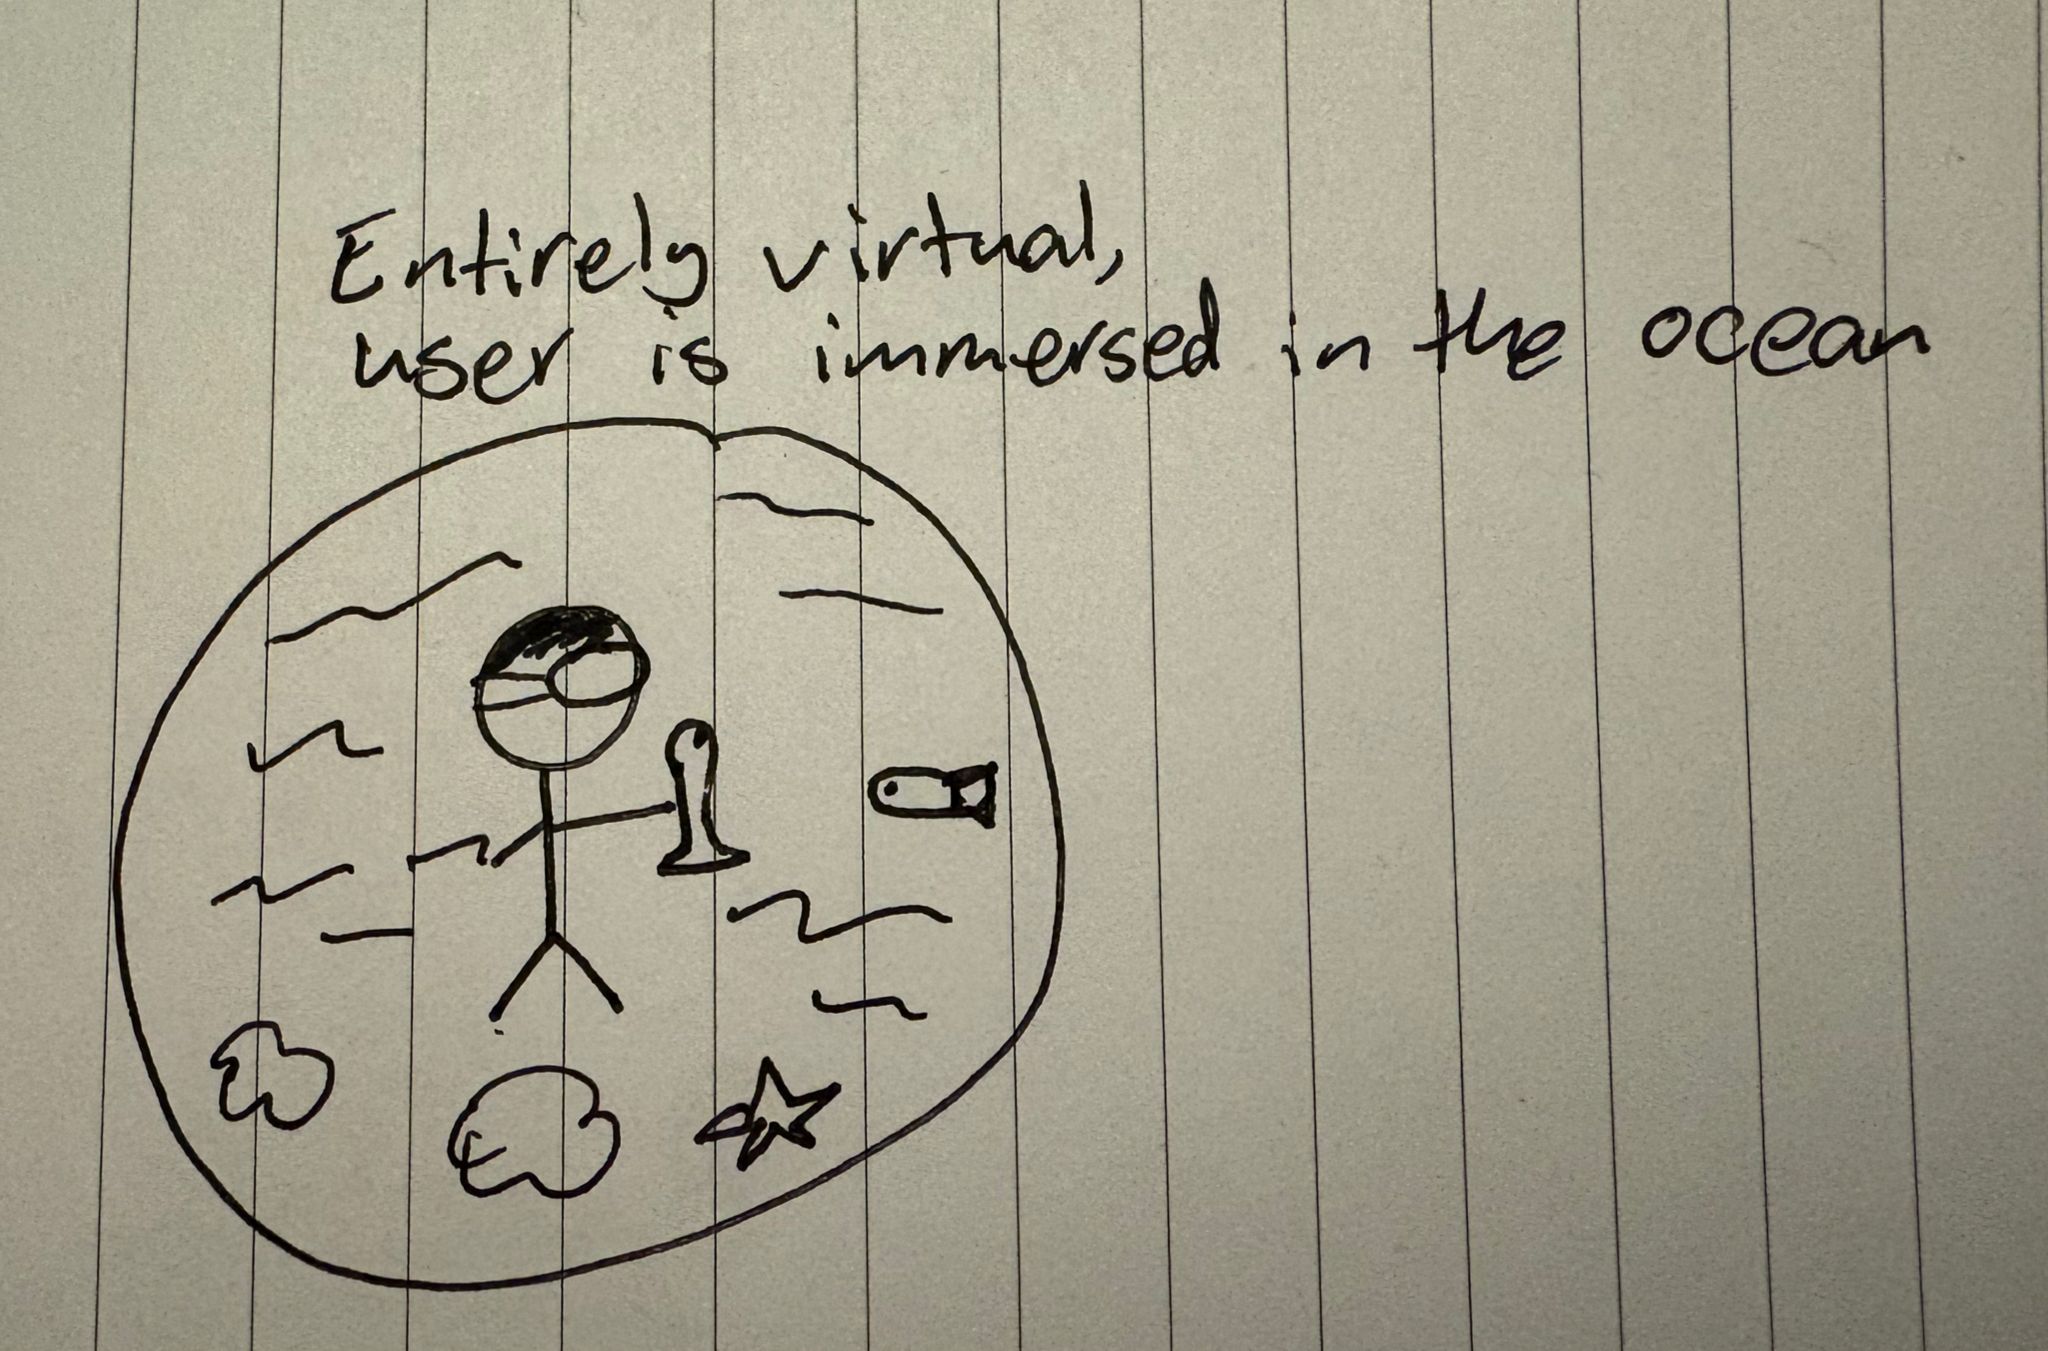 Entirely virtual,
user is immersed in the ocean